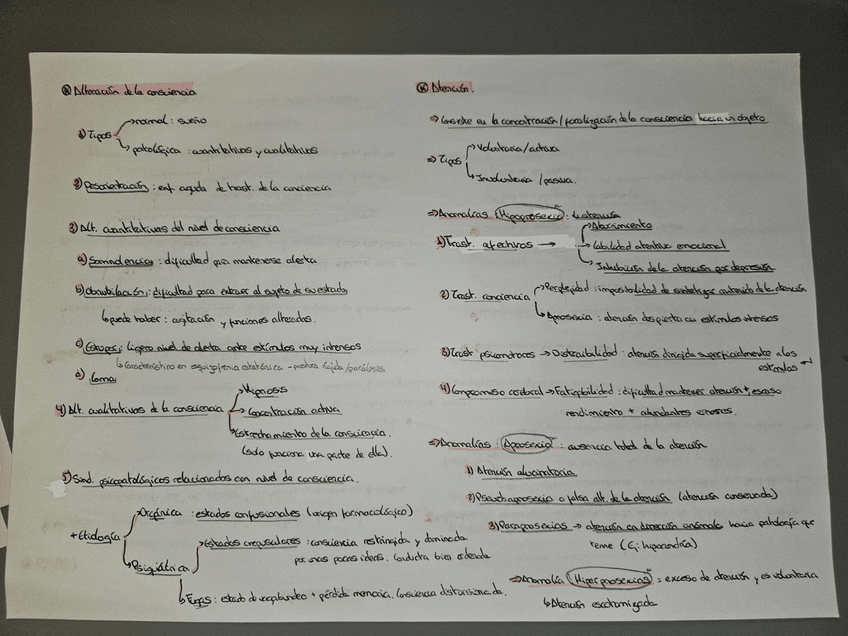 ⊛ Alteración de la consciencia
1) Tipos
→ normal : sueño
→ patológica : cuantitativos y cualitativos
2) Desorientación : enf. aguda de trast. de la conciencia
3) Alt. cuantitativos del nivel de consciencia
a) Somnolencia : dificultad para mantenerse alerta
b) obnubilación : dificultad para extraer al sujeto de su estado
↳ puede haber : agitación y funciones alteradas.
c) Estupor : ligero nivel de alerta ante estímulos muy intensos
↳ Característico en esquizofrenia catatónica - postura rígida/parálisis
d) Coma
4) Alt. cualitativos de la consciencia
→ Hipnosis
→ Concentración activa
→ Estrechamiento de la consciencia.
(solo funciona una parte de ella).
5) Sind. psicopatológicos relacionados con nivel de consciencia.
+ Etiología
→ Orgánica : estados confusionales (origen farmacológico)
→ Psiquiátrica
→ Estados crepusculares : consciencia restringida y dominada
por unas pocas ideas. Conducta bien ordenada
↳ Fugas : estado de vagabundeo + pérdida memoria. Consciencia distorsionada.
⊛ Atención.
⇒ Consiste en la concentración / focalización de la consciencia hacia un objeto
⇒ Tipos
→ Voluntaria / activa
→ Involuntaria / pasiva.
⇒ Anomalías Hipoprosexia : ↓ atención
1) Trast. afectivos →
→ Aburrimiento
→ labilidad atentiva emocional
→ Inhibición de la atención por depresión
2) Trast. conciencia
→ Perplejidad : imposibilidad de sintetizar contenido de la atención
→ Aprosexia : atención despierta con estímulos intensos
3) Trast. psicomotores → Distraibilidad : atención dirigida superficialmente a los
estímulos
4) Compromiso cerebral → Fatigabilidad : dificultad mantener atención + escaso
rendimiento + abundantes errores.
⇒ Anomalías : Aprosexia : ausencia total de la atención
1) Atención alucinatoria
2) Pseudoaprosexia o falsa alt. de la atención (atención conservada)
3) Paraprosexias → atención en dirección anómala hacia patología que
teme (Ej: hipocondría)
⇒ Anomalía Hiperprosexias : exceso de atención y es voluntaria
↳ Atención escotomizada